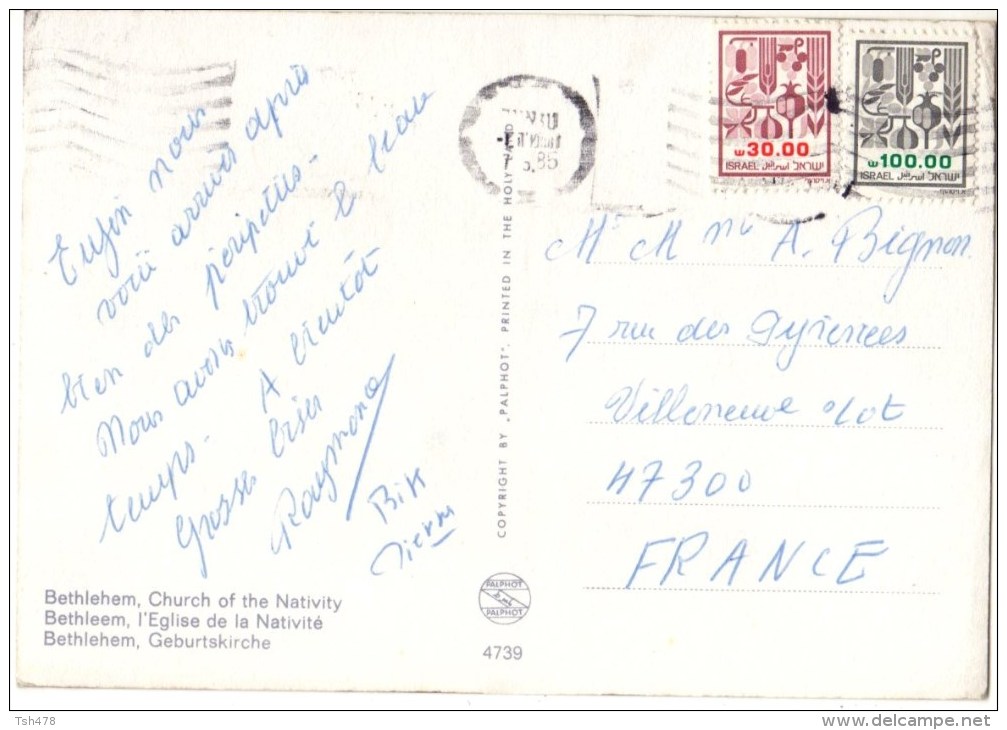 Enfin nous
voici arrivés après
bien des péripéties.
Nous avons trouvé le beau
temps. A bientôt
Grosses bises
Raymond
Bises
Pierre
Bethlehem, Church of the Nativity
Bethleem, l'Eglise de la Nativité
Bethlehem, Geburtskirche
COPYRIGHT BY „PALPHOT", PRINTED IN THE HOLY LAND
PALPHOT
PALPHOT
4739
85
30.00
ISRAEL اسرائيل ישראל
100.00
ISRAEL اسرائيل ישראל
M. Mme A. Bignon
7 rue des Pyrénées
Villeneuve s/Lot
47300
FRANCE
Tsh478
www.delcampe.net